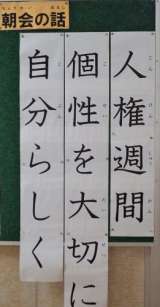 朝会の話
人権週間
個性を大切に
自分らしく